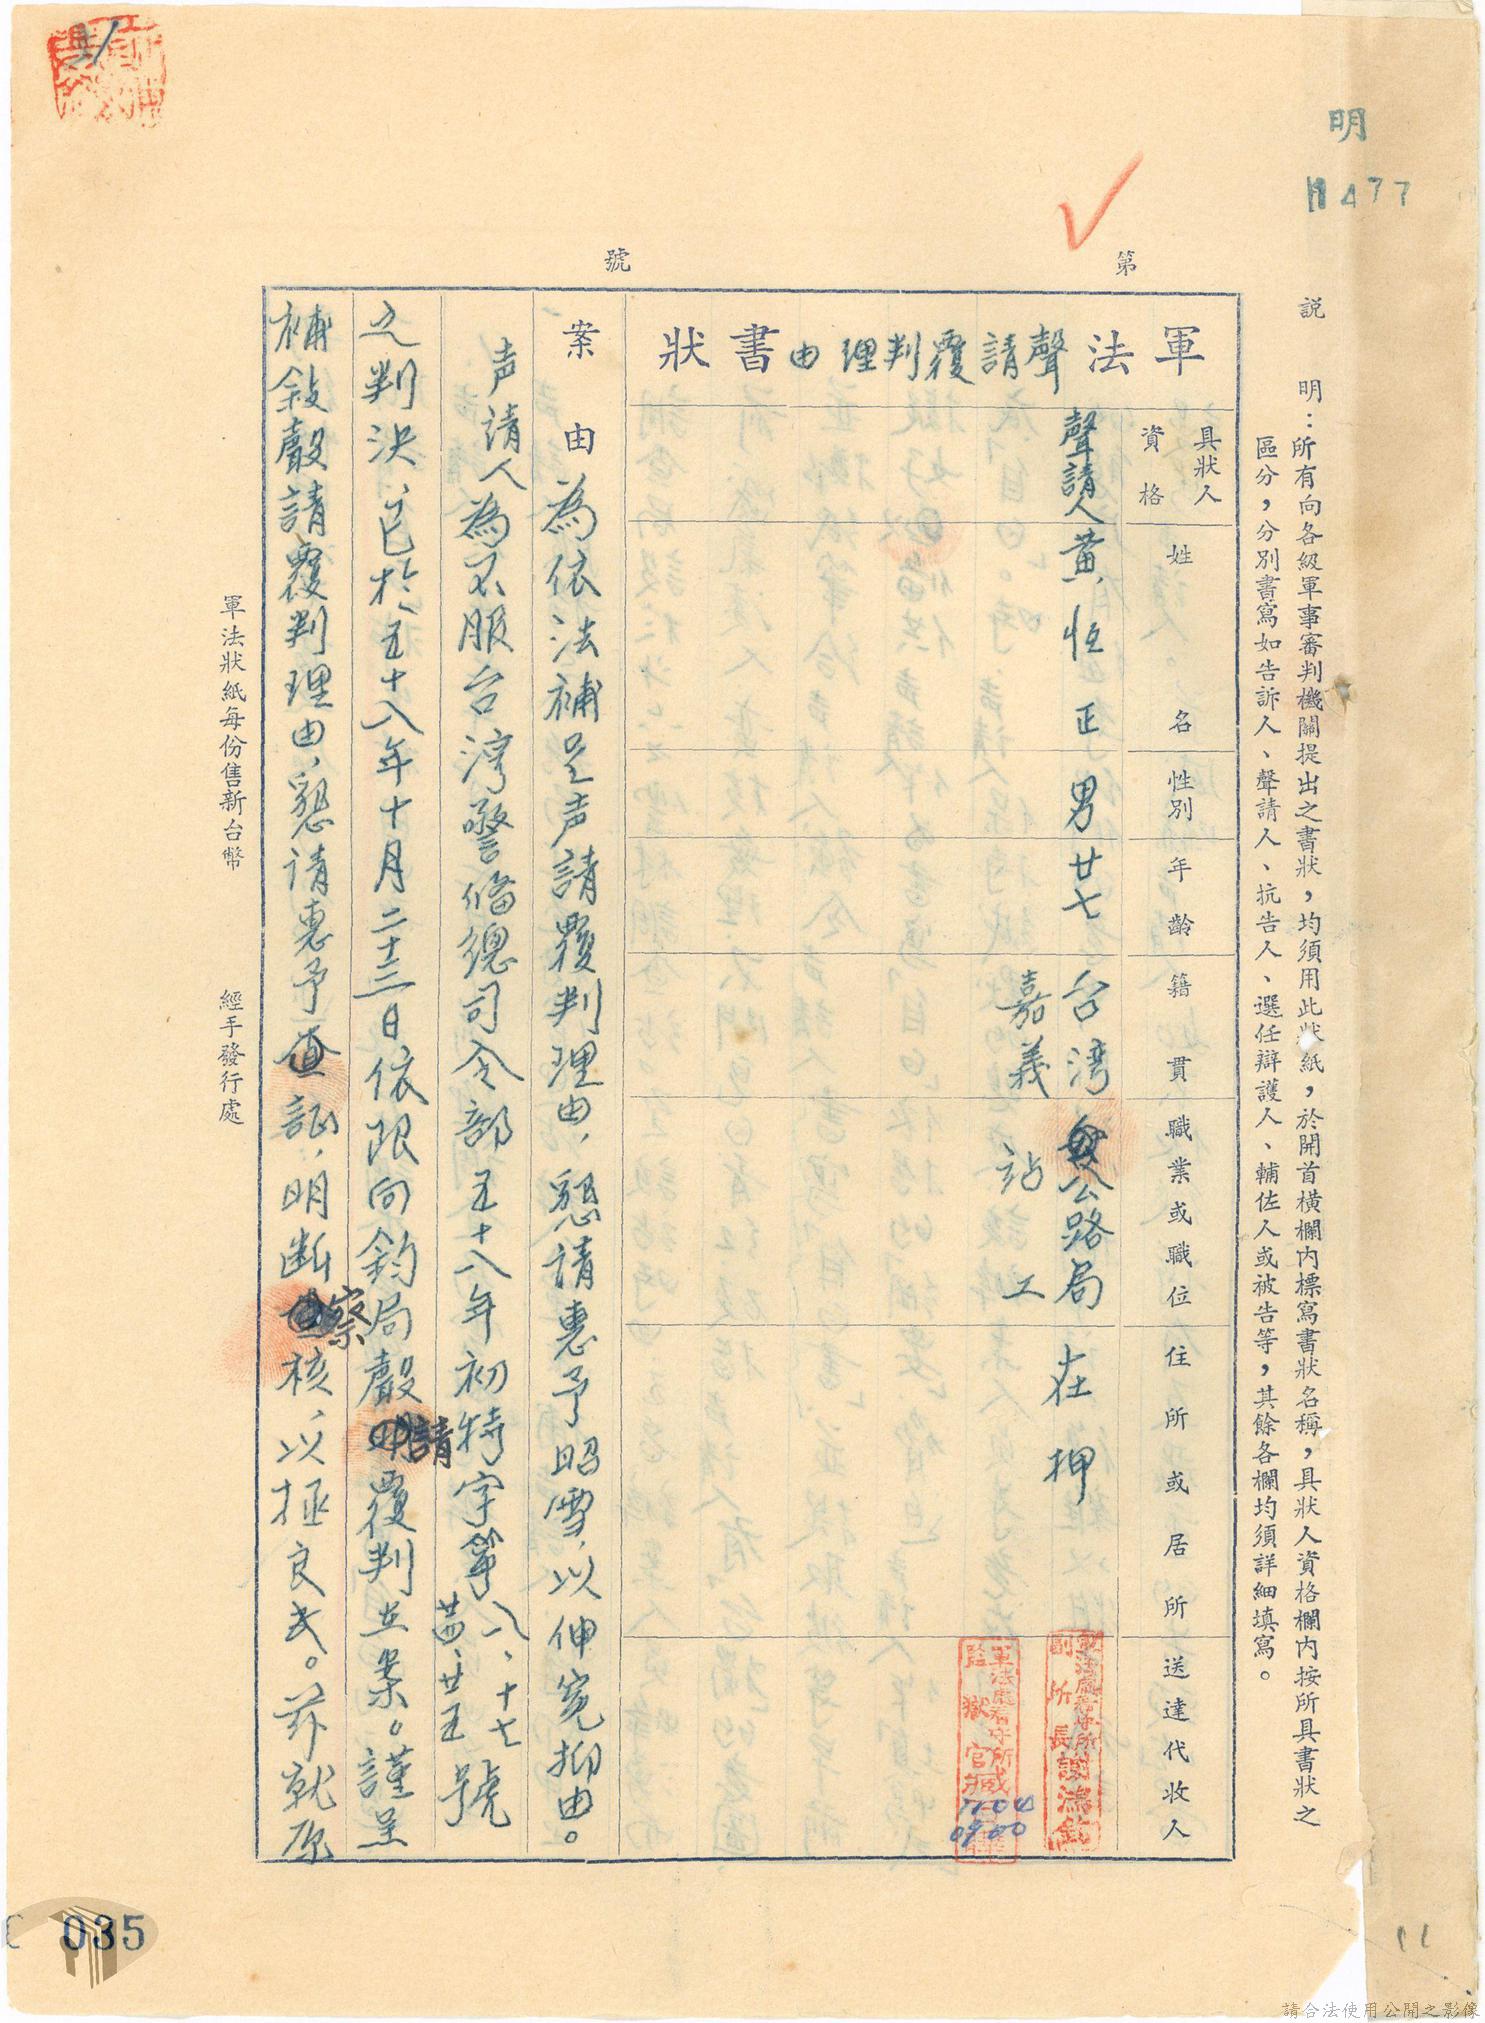 明
1477
第
號
說 明：所有向各級軍事審判機關提出之書狀，均須用此狀紙，於開首橫欄內標寫書狀名稱，具狀人資格欄內按所具書狀之
區分，分別書寫如告訴人、聲請人、抗告人、選任辯護人、輔佐人或被告等，其餘各欄均須詳細填寫。
軍法聲請覆判理由書狀
具狀人
資格
姓名
性別
年齡
籍貫
職業或職位
住所或居所
送達代收人
聲請人
黃恒正
男
廿七
台灣
嘉義
公路局
站工
在押
軍法處看守所
副所長謝鴻
軍法處看守所
監獄官臧
11.04
0900
案由
為依法補呈声請覆判理由，懇請惠予昭雪，以伸冤抑由。
声請人為不服台灣警備總司令部五十八年初特字第八、十七
苗、廿五號
之判決，已於五十八年十月二十三日依限向鈞局聲請覆判在案。謹呈
補敍聲請覆判理由，懇請惠予查証，明断察核，以拯良民。茲就原
軍法狀紙每份售新台幣
經手發行處
035
11
請合法使用公開之影像